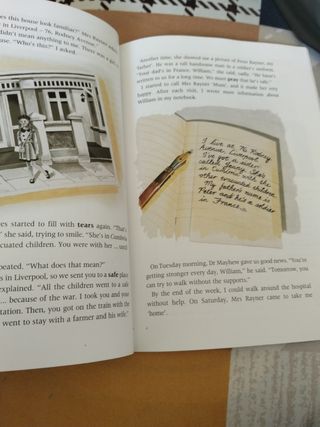 es this house look familiar?" Mrs Rayner
in Liverpool – 76, Rodney Avenue."
didn't mean anything to me. There was a girl
house. "Who's this?" I asked.
es started to fill with tears again. "That's
she said, trying to smile. "She's in Cumbria
cuated children. You were with her ... until
peated. "What does that mean?"
s in Liverpool, so we sent you to a safe place
explained. "All the children went to a safe
... because of the war. I took you and your
tation. Then, you got on the train with the
went to stay with a farmer and his wife."
Another time, she showed me a picture of Peter Rayner, my
'father'. He was a tall handsome man in a soldier's uniform.
"Your dad's in France, William," she said, sadly. "He hasn't
written to us for a long time. We must pray that he's safe."
I started to call Mrs Rayner 'Mum', and it made her very
happy. After each visit, I wrote more information about
William in my notebook.
I live at 76 Rodney
Avenue, Liverpool.
I've got a sister
called Jenny. She's
in Cumbria with the
other evacuated children.
My father's name is
Peter and he's a soldier
in France.
On Tuesday morning, Dr Mayhew gave us good news. "You're
getting stronger every day, William," he said. "Tomorrow, you
can try to walk without the supports."
By the end of the week, I could walk around the hospital
without help. On Saturday, Mrs Rayner came to take me
'home'.